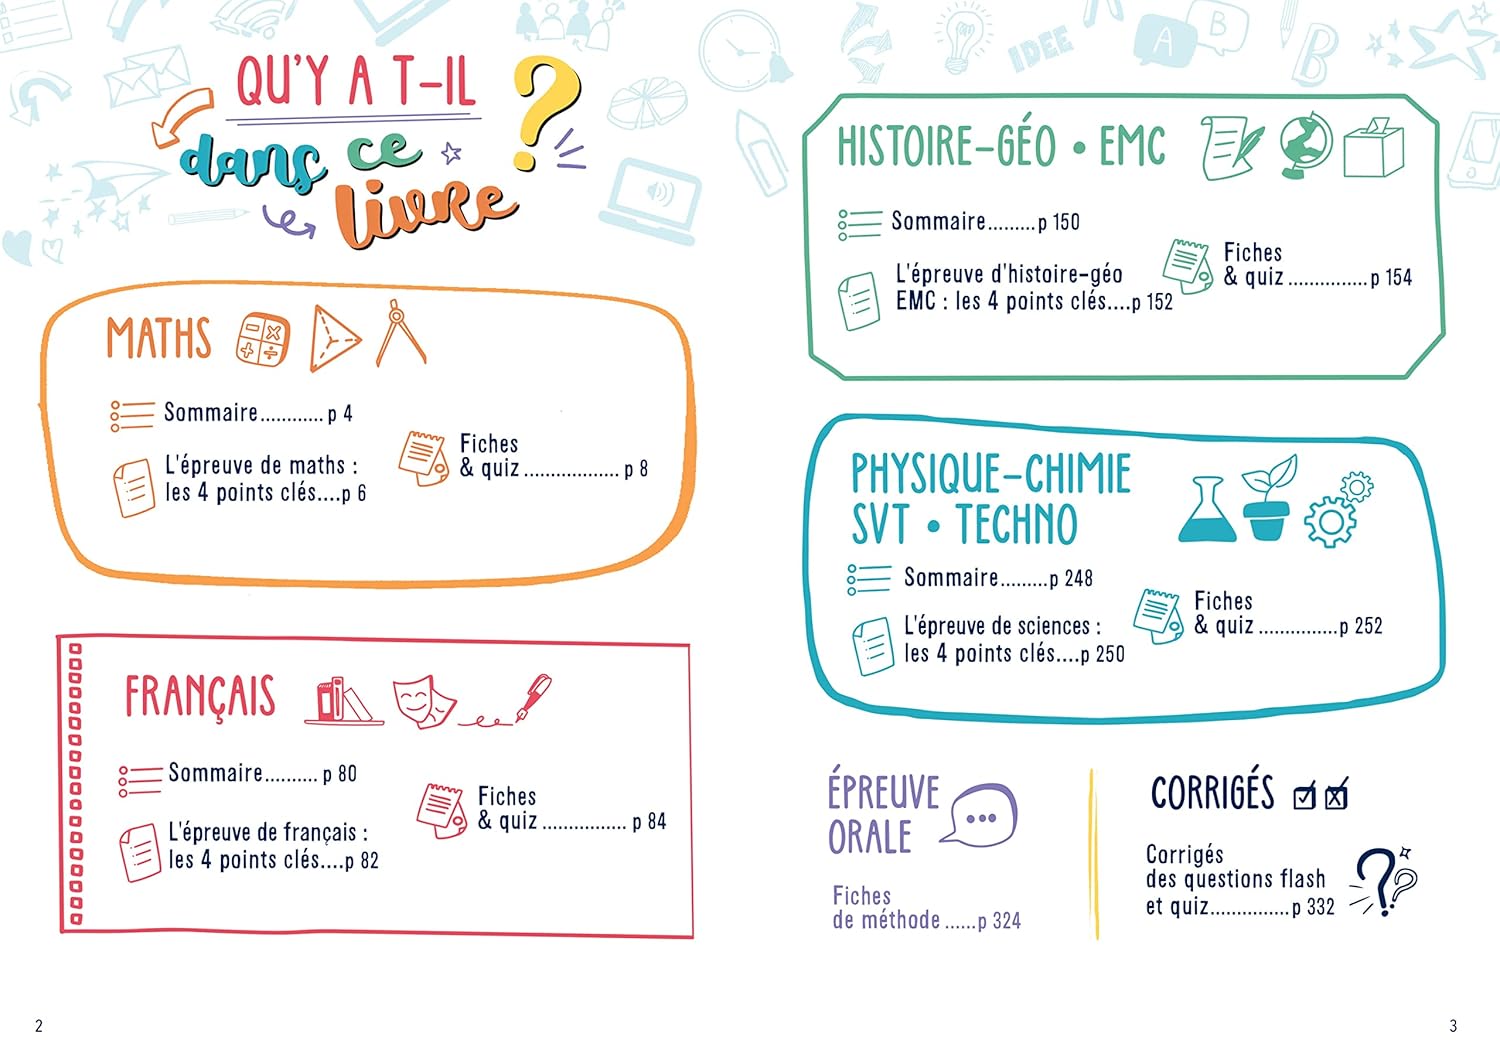 QU'Y A T-IL
dans ce
livre
?
IDEE
A
B
B
MATHS
Sommaire............p 4
L'épreuve de maths :
les 4 points clés....p 6
Fiches
& quiz..................p 8
FRANÇAIS
Sommaire..........p 80
L'épreuve de français :
les 4 points clés....p 82
Fiches
& quiz................p 84
2
HISTOIRE-GÉO • EMC
Sommaire.........p 150
L'épreuve d'histoire-géo
EMC : les 4 points clés....p 152
Fiches
& quiz...............p 154
PHYSIQUE-CHIMIE
SVT • TECHNO
Sommaire.........p 248
L'épreuve de sciences :
les 4 points clés....p 250
Fiches
& quiz...............p 252
ÉPREUVE
ORALE
Fiches
de méthode......p 324
CORRIGÉS
Corrigés
des questions flash
et quiz...............p 332
3